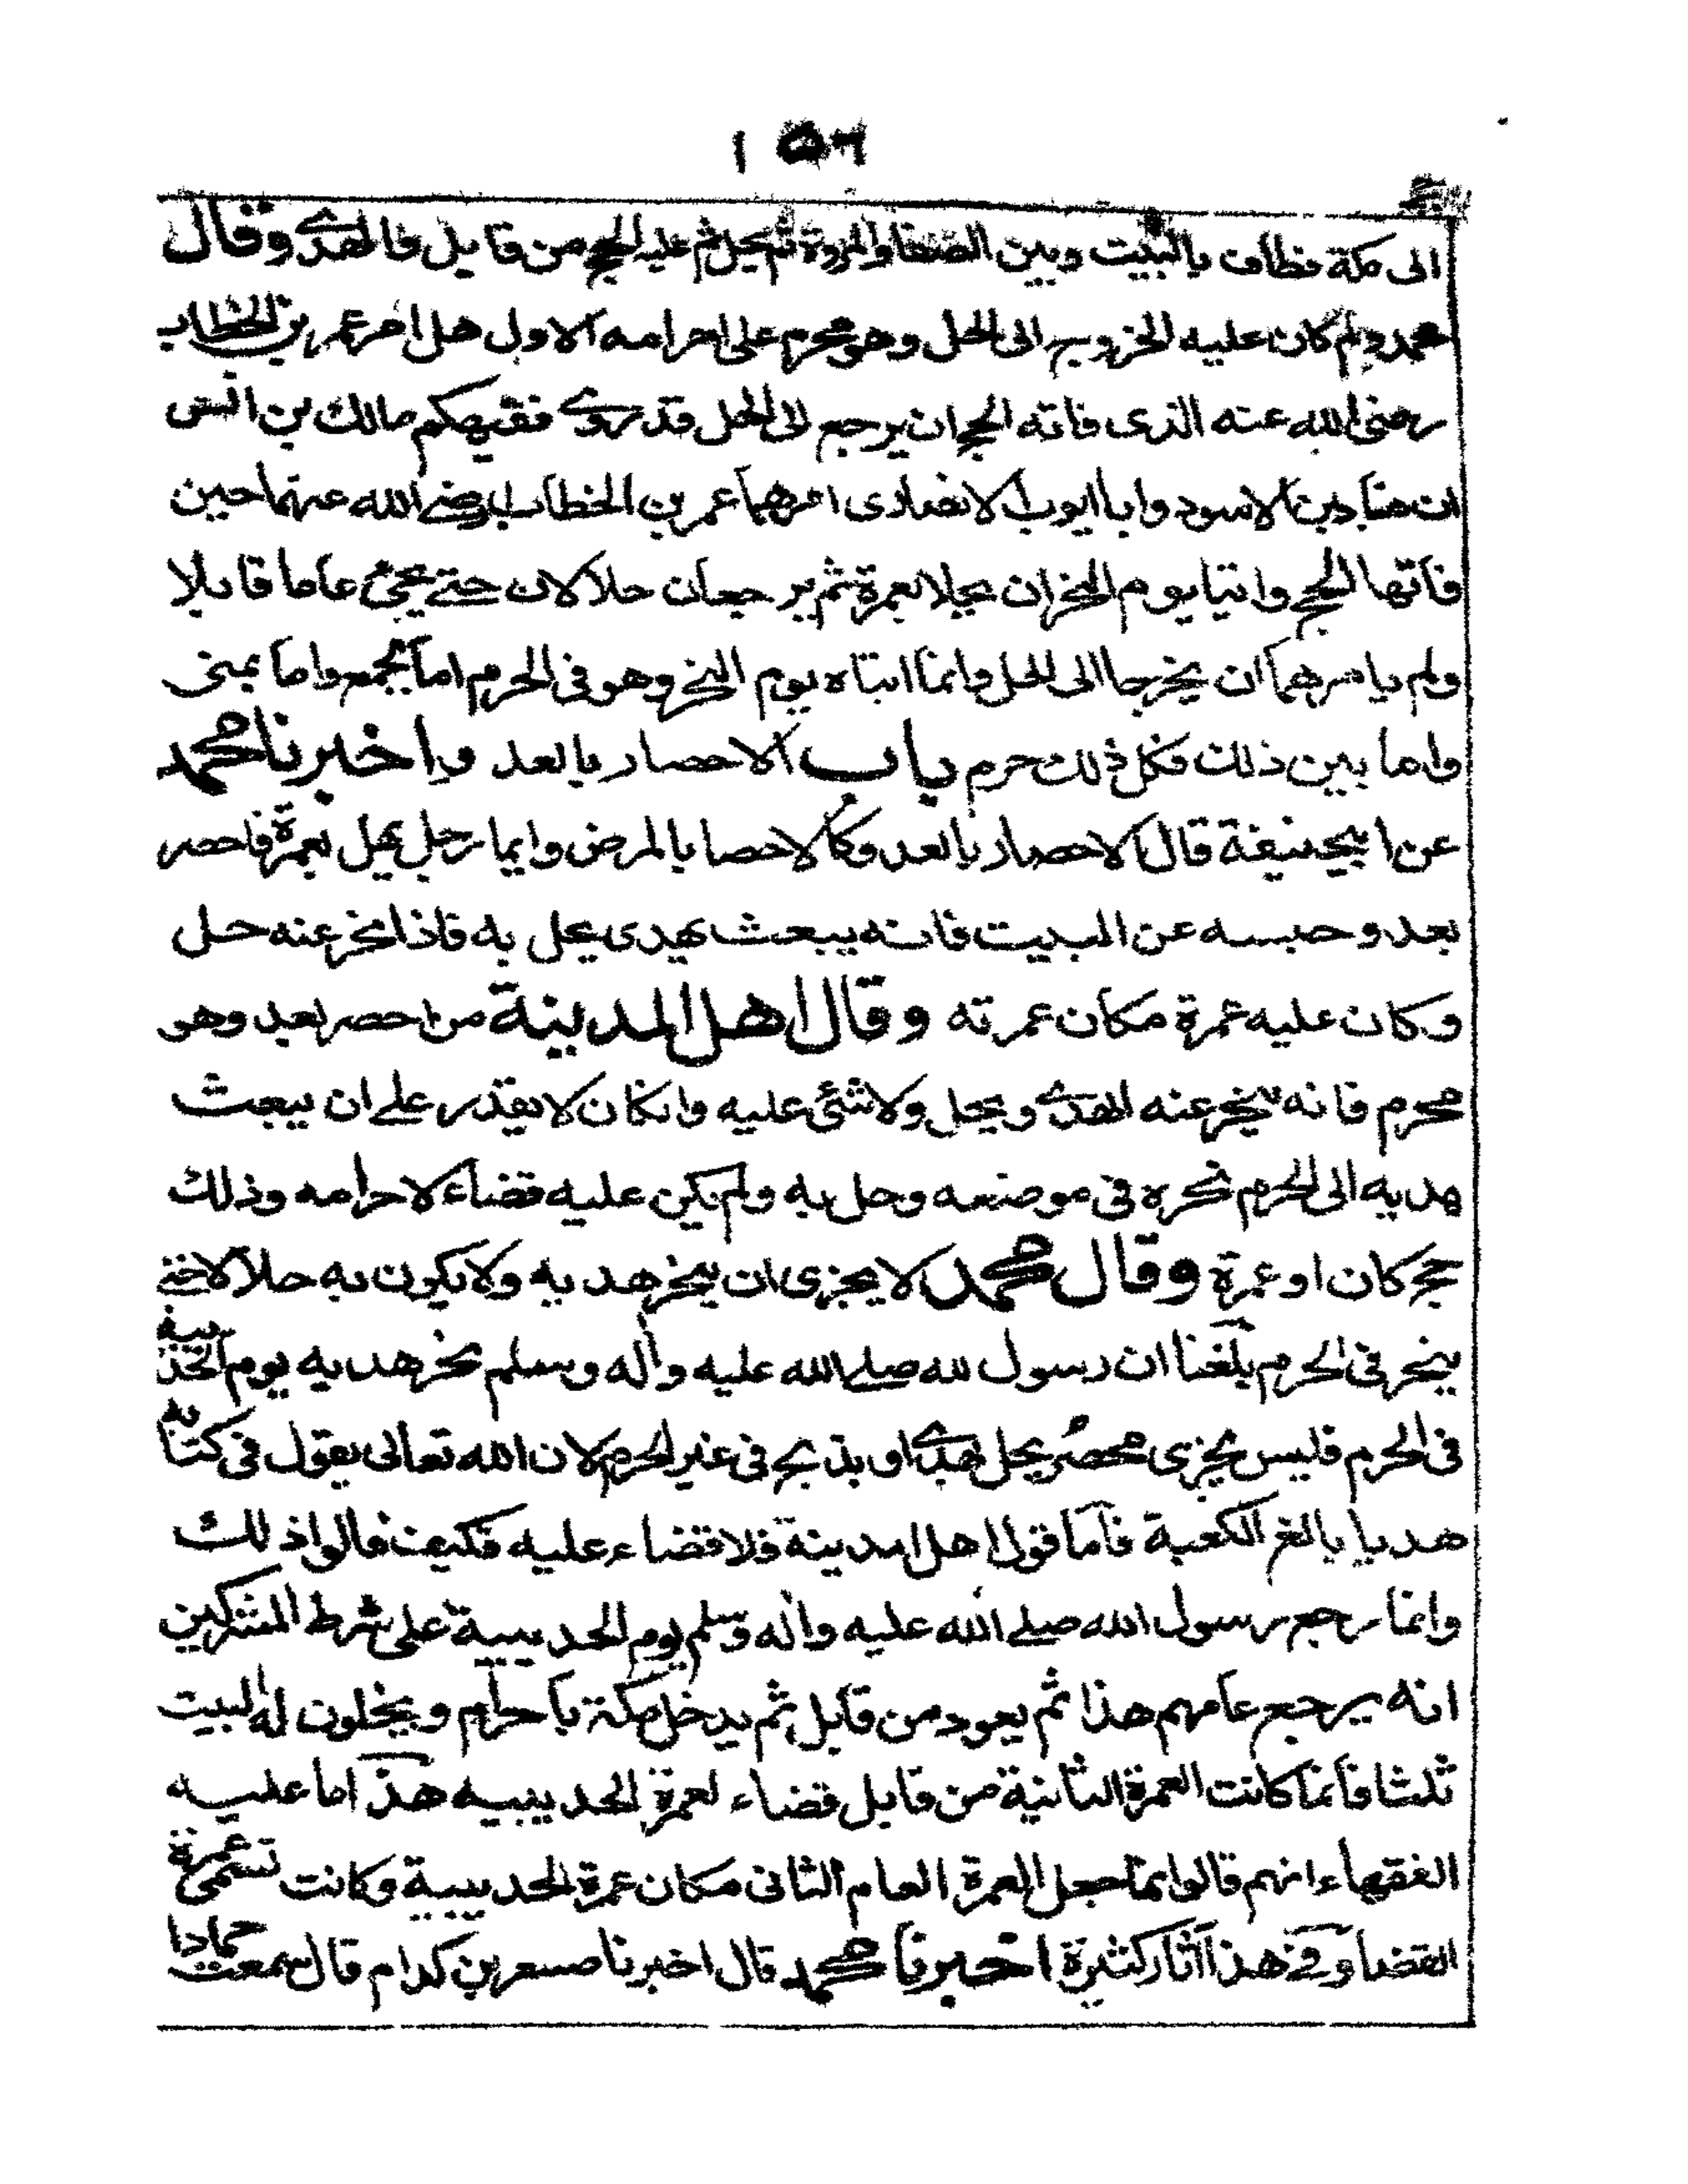 ١٥٦
الى مكة فطاف بالبيت وبين الصفا والمروة ثم يحل ثم عليه الحج من قابل فالهدى وقال
محمد ولم كان عليه الخروج الى الحل وهو محرم على احرامه الاول هل امر عمر بن الخطاب
رضى الله عنه الذى فاته الحج ان يرجع الى الحل قد روى فقيهكم مالك بن انس
ان هبار بن الاسود وابا ايوب الانصارى امرهما عمر بن الخطاب رضى الله عنهما حين
فاتها الحج واتيا يوم النحر ان يحلا بعمرة ثم يرجعان حلالان حتى يحجئ عاما قابلا
ولم يامرهما ان يخرجا الى الحل وانما اتياه يوم النحر وهو فى الحرم اما بجمع واما بمنى
واما بين ذلك فكل ذلك حرم باب الاحصار بالعد و اخبرنا محمد
عن ابيحنيفة قال الاحصار بالعد وكالاحصا بالمرض وايما رجل يهل بعمرة فاحصر
بعد وحبسه عن البيت فانه يبعث بهدى يحل به فاذا نحر عنه حل
وكان عليه عمرة مكان عمرته وقال اهل المدينة من احصر بعد وهو
محرم فانه ينحر عنه الهدى ويحل ولا شئ عليه وانكان لا يقدر على ان يبعث
هديه الى الحرم نحره فى موضعه وحل به ولم يكن عليه قضاء لاحرامه وذلك
حج كان او عمرة وقال محمد لا يجزى ان ينحر هديه ولا يكون به حلالا حتى
ينحر فى الحرم بلغنا ان رسول لله صلى الله عليه واله وسلم نحر هديه يوم الحديبية
فى الحرم فليس يجزى محصر يحل بهدى او بذبح فى غير الحرم لان الله تعالى يقول فى كتابه
هديا بالغ الكعبة فاما قول اهل المدينة فلا قضاء عليه فكيف قالوا ذلك
وانما رجع رسول الله صلى الله عليه واله وسلم يوم الحديبية على شرط المشركين
انه يرجع عامهم هذا ثم يعود من قابل ثم يدخل مكة باحرام ويخلون له البيت
ثلثا فانما كانت العمرة الثانية من قابل قضاء لعمرة الحديبيه هذا ما عليه
الفقهاء انهم قالوا انما جعل العمرة العام الثانى مكان عمرة الحديبية وكانت تسمى عمرة
القضا وفى هذا آثار كثيرة اخبرنا محمد قال اخبرنا مسعر بن كدام قال سمعت حمادا